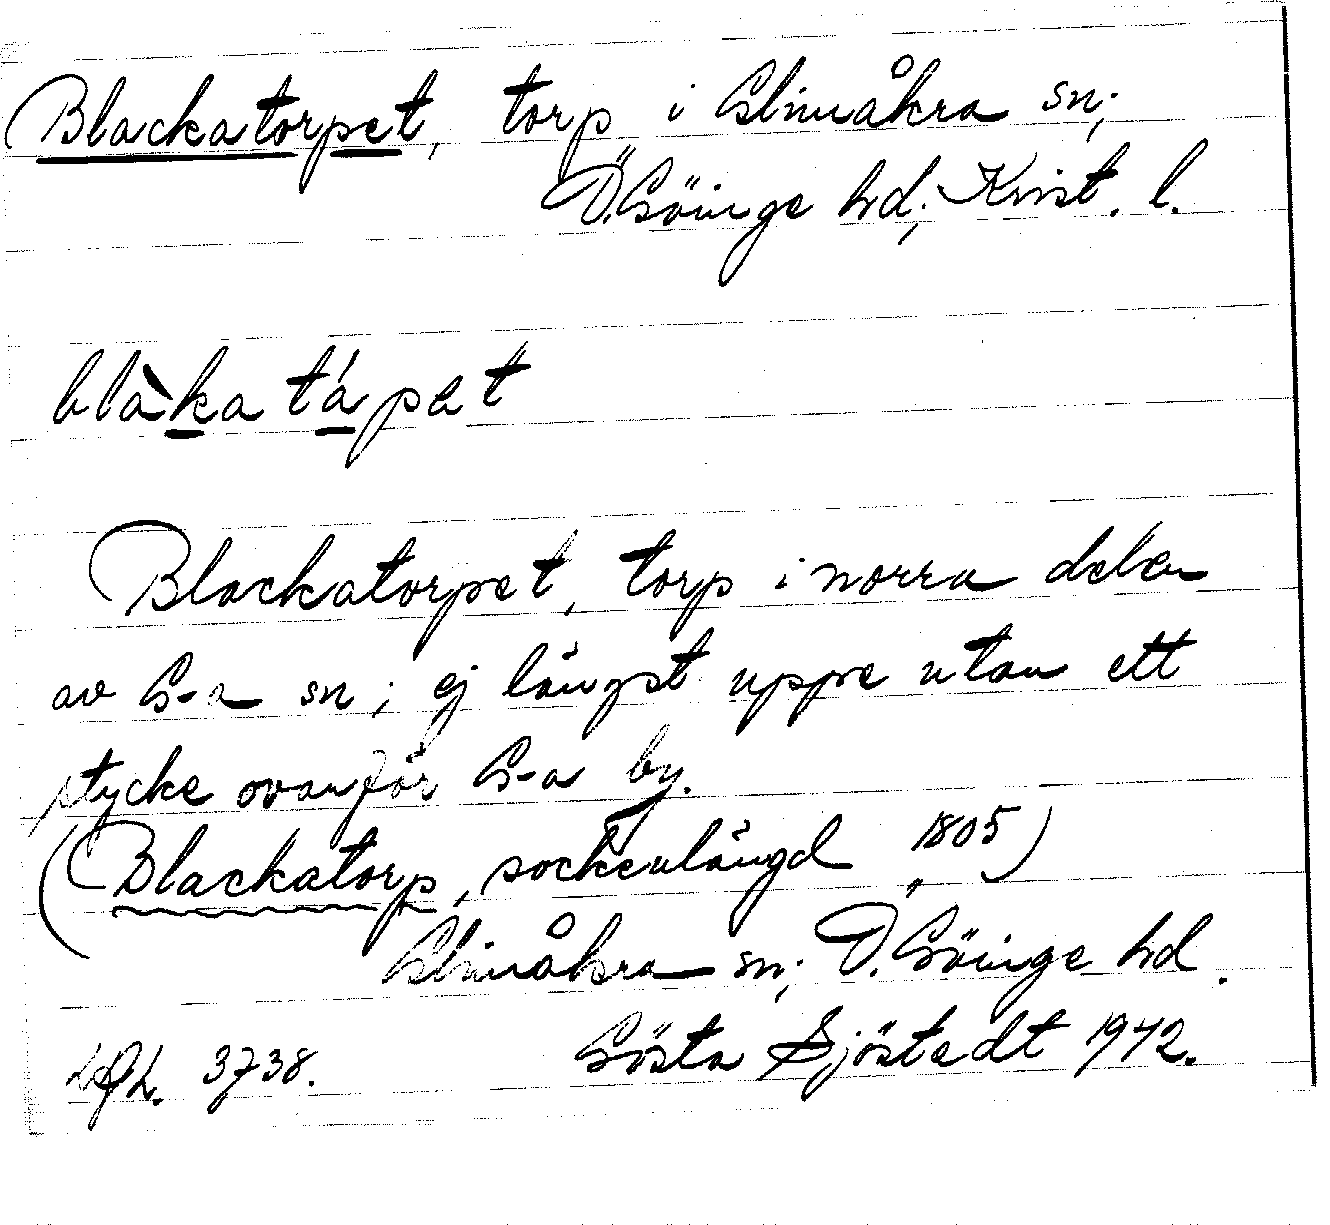 Blackatorpet, torp i Glimåkra sn;
Ö. Göinge hd; Krist. l.
blàka tápet
Blackatorpet, torp i norra delen
av G-a sn; ej längst uppe utan ett
stycke ovanför G-a by.
(Blackatorp, sockenlängd 1805)
Glimåkra sn; Ö. Göinge hd.
Gösta Sjöstedt 1942.
3738.